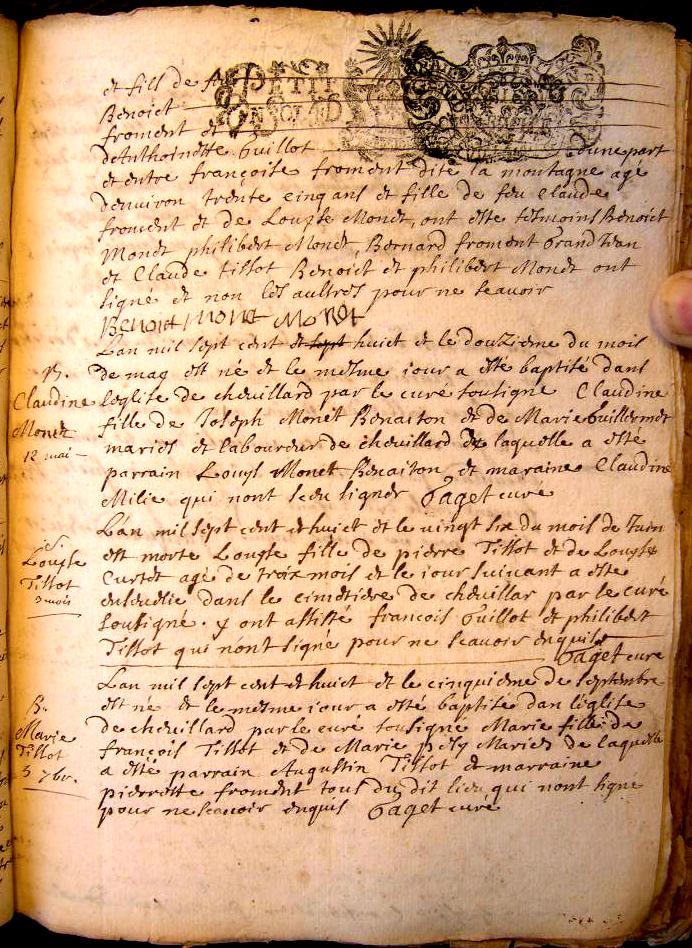 et fille de
Benoict
froment et
d'Anthoinette Guillot d'une part
et entre françoise froment dite la montagne agé
d'environ trente cinq ans et fille de feu Claude
froment et de Louyse Monet, ont esté tesmoins Benoict
Monet philibert Monet, Bernard froment Grand Jean
et Claude Tissot Benoict et philibert Monet ont
signé et non les aultres pour ne scavoir
BENOICT MONET MONET
L'an mil sept cent et sept huict et le douzieme du mois
de may est né et le mesme jour a esté baptisé dans
l'eglise de cheuillard par le curé soubsigné Claudine
fille de Joseph Monet Benaiton et de Marie Guillermet
mariés et laboureur de cheuillard de laquelle a esté
parrain Louys Monet Benaiton et maraine Claudine
Milie qui nont sceu signer Paget curé
B.
Claudine
Monet
12 mai
L'an mil sept cent et huict et le vingt six du mois de Juin
est morte Louyse fille de pierre Tissot et de Louyse
Curtet agé de troix mois et le jour suivant a esté
ensevelie dans le cimetiere de cheuillar par le curé
soubsigné. y ont assisté francois Guillot et philibert
Tissot qui n'ont signé pour ne scavoir enquis
Paget curé
S.
Louyse
Tissot
3 mois
L'an mil sept cent et huict et le cinquieme de septembre
est né et le mesme jour a esté baptisé dan l'eglise
de cheuillard par le curé soubsigné Marie fille de
françois Tissot et de Marie pesy Mariés de laquelle
a esté parrain Augustin Tissot et marraine
pierrette froment tous du dit lieu qui nont signé
pour ne scavoir enquis Paget curé
B.
Marie
Tissot
5 7br.